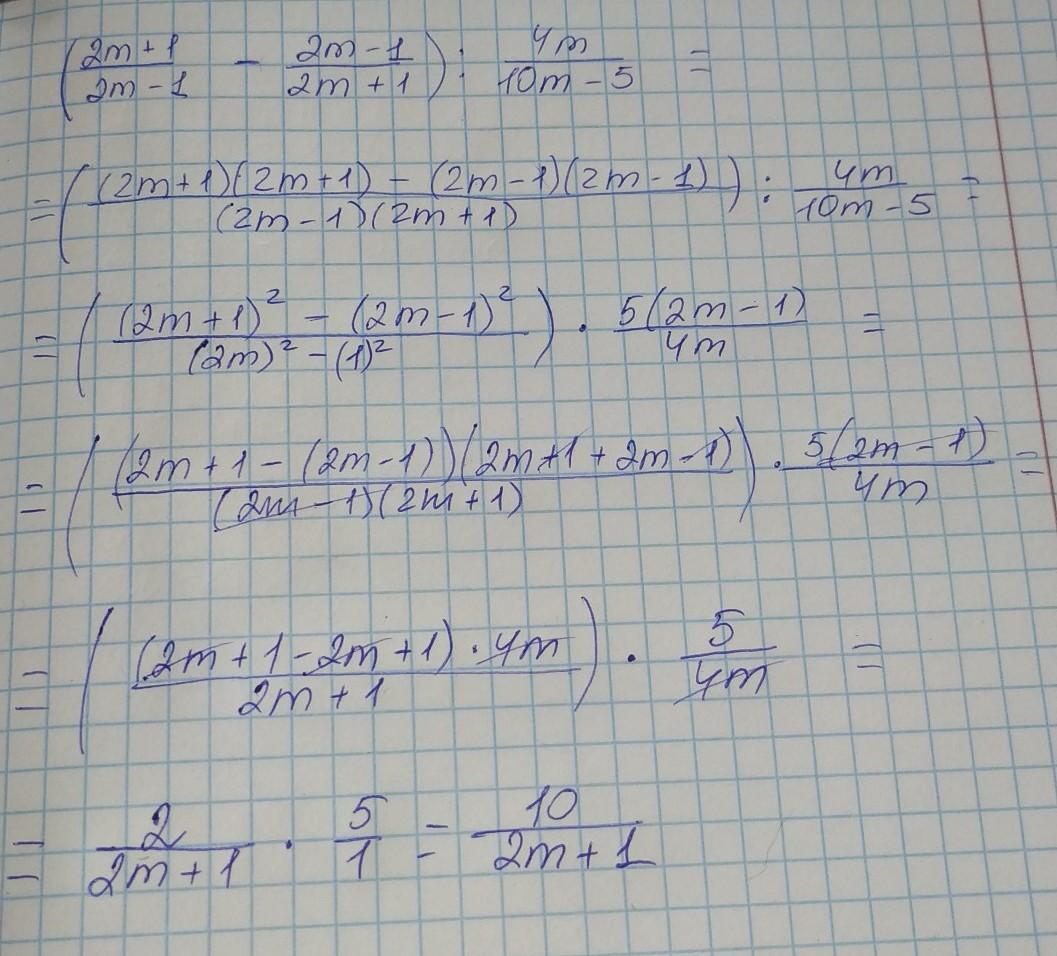 ((2m+1)/(2m-1) - (2m-1)/(2m+1)) : 4m/(10m-5) =
= (((2m+1)(2m+1) - (2m-1)(2m-1))/((2m-1)(2m+1))) : 4m/(10m-5) =
= (((2m+1)² - (2m-1)²)/((2m)² - (1)²)) · 5(2m-1)/4m =
= (((2m+1-(2m-1))(2m+1+2m-1))/((2m-1)(2m+1))) · 5(2m-1)/4m =
= (((2m+1-2m+1)·4m)/(2m+1)) · 5/4m =
= 2/(2m+1) · 5/1 = 10/(2m+1)